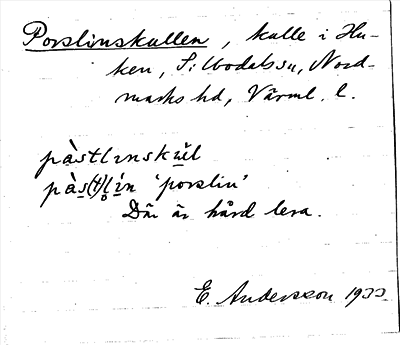 Porslinskullen, kulle i Hu-
ken, Silbodals sn, Nord-
marks hd, Värml. l.
pàstlinskŭl
pàs(t)lín 'porslin'
Där är hård lera.
E. Andersson 1933